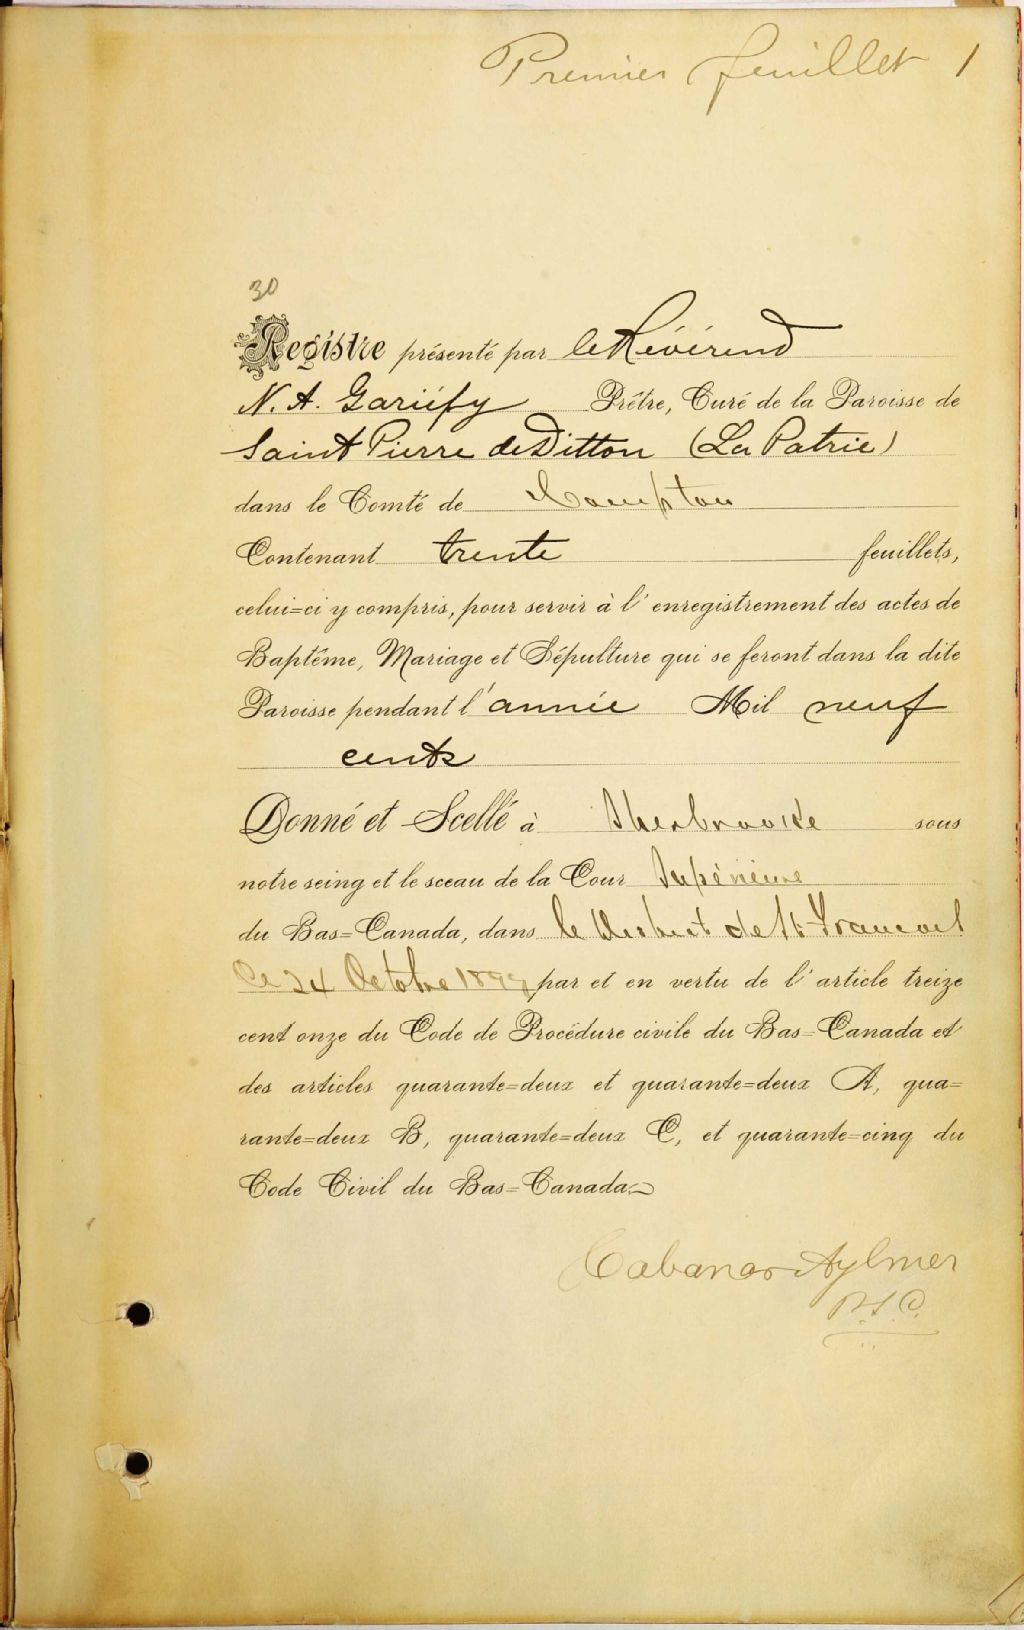 Premier feuillet 1
30
Registre présenté par le Révérend
N. A. Gariépy Prêtre, Curé de la Paroisse de
Saint Pierre de Ditton (La Patrie)
dans le Comté de Compton
Contenant trente feuillets,
celui=ci y compris, pour servir à l'enregistrement des actes de
Baptême, Mariage et Sépulture qui se feront dans la dite
Paroisse pendant l'année Mil neuf
cents
Donné et Scellé à Sherbrooke sous
notre seing et le sceau de la Cour Supérieure
du Bas=Canada, dans le District de St François
Ce 24 Octobre 1899 par et en vertu de l'article treize
cent onze du Code de Procédure civile du Bas=Canada et
des articles quarante=deux et quarante=deux A, qua=
rante=deux B, quarante=deux C, et quarante=cinq du
Code Civil du Bas=Canada.
Cabana & Aylmer
P.S.C.